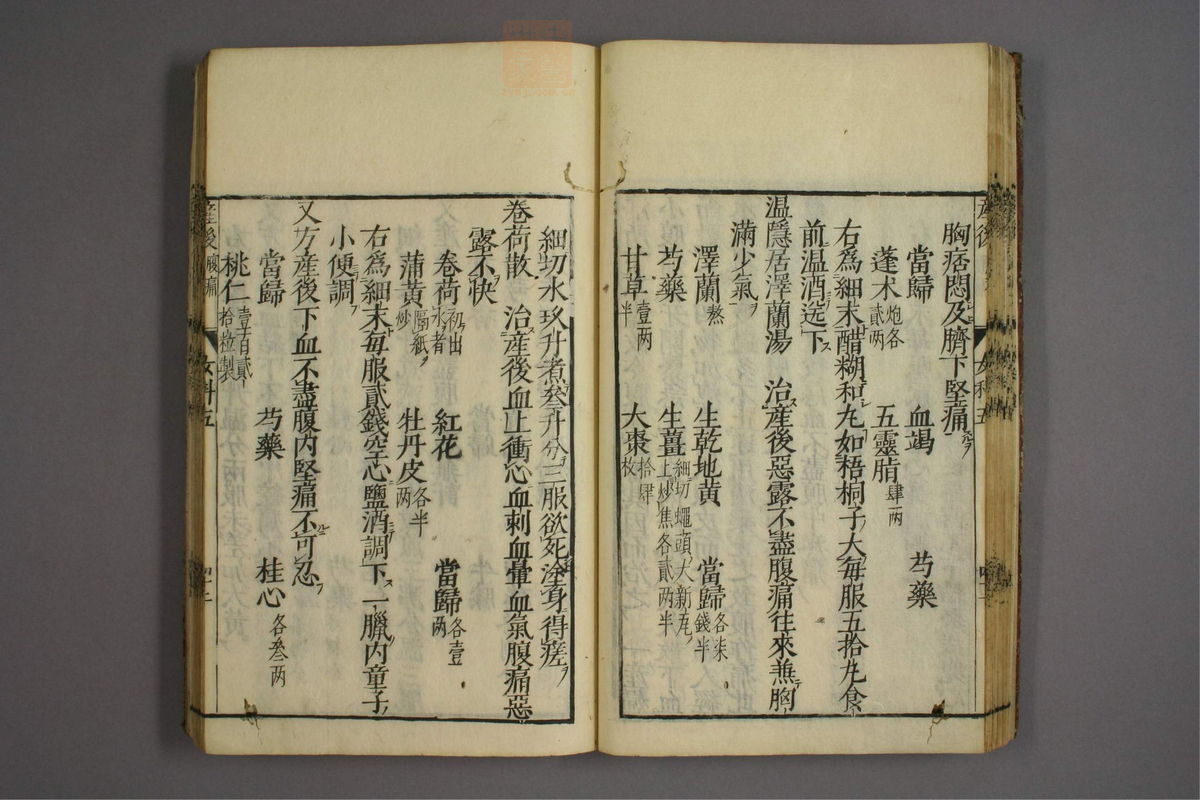 胸痞悶及臍下堅痛
當歸 血竭 芍藥
蓬术炮各貳两 五靈脂肆两
右爲細末醋糊和丸如梧桐子大每服五拾丸食
前温酒送下
温隱居澤蘭湯 治產後惡露不盡腹痛往來兼胸
滿少氣
澤蘭熬 生乾地黃 當歸各柒錢半
芍藥 生薑細切蠅頭大新瓦上炒焦各貳两半
甘草壹两半 大棗拾肆枚
細切水玖升煮叁升分三服欲死塗身得瘥
卷荷散 治產後血上衝心血刺血暈血氣腹痛惡
露不快
卷荷初出水者 紅花 當歸各壹两
蒲黃隔紙炒 牡丹皮各半两
右爲細末每服貳錢空心鹽酒調下一臘内童子
小便調
又方產後下血不盡腹内堅痛不可忍
當歸 芍藥 桂心各叁两
桃仁壹百貳拾粒製
產後腹痛 女科五